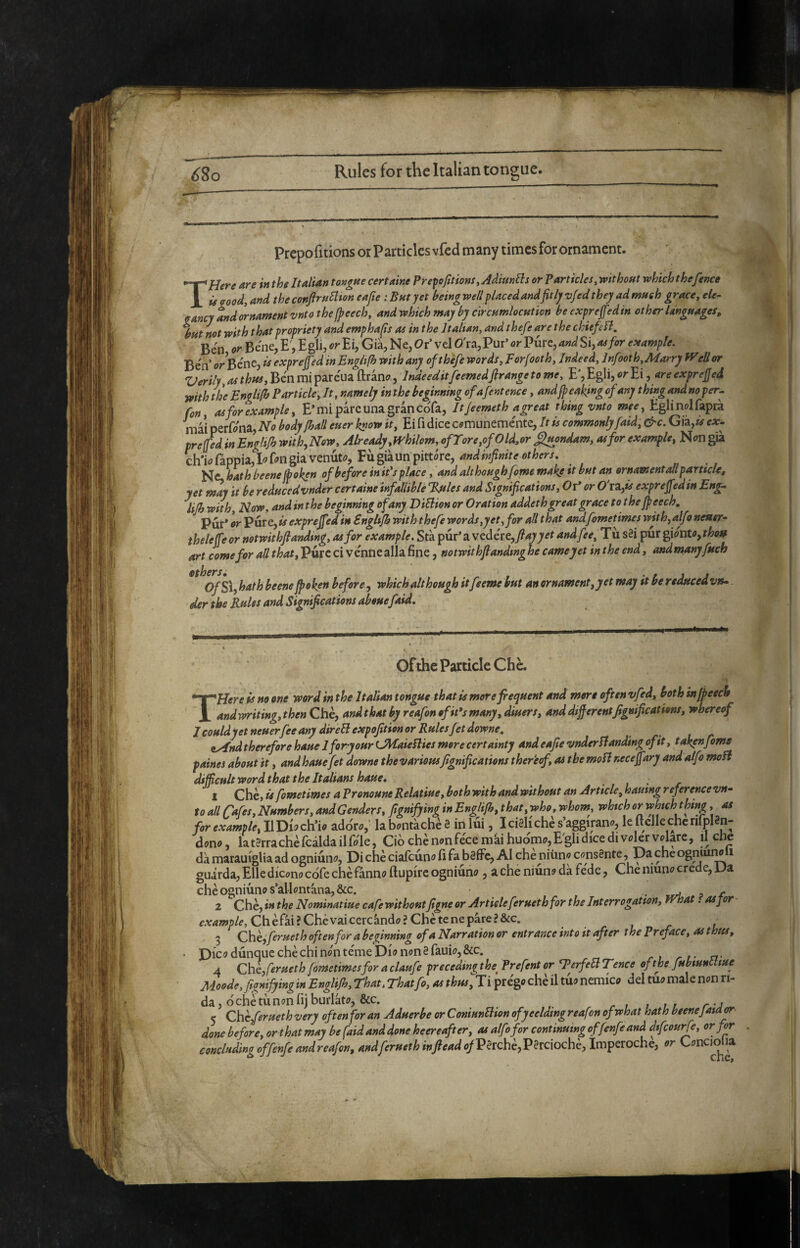 680 Rules for the Italian tongue.
Prepositions or Particles vsed many times for ornament.
THere are in the Italian tongue certaine Prepositions, Adiuncts or Particles, without which the sence
is good, and the construction easie : But yet being well placed and fitly vsed they ad much grace, ele-
gancy and ornament vnto the speech, and which may by circumlocution be expressed in other languages,
but not with that propriety and emphasis as in the Italian, and these are the chiefest.
Bén, or Béne, E', Egli, or Ei, Già, Ne, Or' vel O'ra, Pur' or Púre, and Si, as for example.
Bén' or Béne, is expressed in English with any of these words, Forsooth, Indeed, Insooth, Marry Well or
Verily, as thus, Bén mi paréua stráno, Indeed it seemed strange to me, E', Egli, or Ei, are expressed
with the English Particle, It, namely in the beginning of a sentence, and speaking of any thing and no per-
son, as for example, E' mi páre una grán cósa, It seemeth a great thing vnto mee, Egli nol saprà
mái persóna, No body shall euer know it, Ei si dice comuneménte, It is commonly said, &c. Già, is ex-
pressed in English with, Now, Already, Whilom, of Yore, of Old, or Quondam, as for example, Non già
ch'io sappia, Io son gia venúto, Fù già un pittóre, and infinite others.
Ne, hath beene spoken of before in it's place, and although some make it but an ornamentall particle,
yet may it be reduced vnder certaine infallible Rules and Significations, Or' or O'ra, is expressed in Eng-
lish with, Now, and in the beginning of any Diction or Oration addeth great grace to the speech.
Púr' or Púre, is expressed in English with these words, yet, for all that and sometimes with, also neuer-
thelesse or notwithstanding, as for example. Stà púr' a vedére, stay yet and see, Tù sèi púr giónto, thou
art come for all that, Púre ci vénne alla fine, notwithstanding he came yet in the end, and many such
others.
Of Sì, hath beene spoken before, which although it seeme but an ornament, yet may it be reduced vn-
der the Rules and Significations aboue said.
Of the Particle Chè.
THere is no one word in the Italian tongue that is more frequent and more often vsed, both in speech
and writing, then Chè, and that by reason of it's many, diuers, and different significations, whereof
I could yet neuer see any direct exposition or Rules set downe.
And therefore haue I for your Maiesties more certainty and easie vnderstanding of it, taken some
paines about it, and haue set downe the various significations thereof, as the most necessary and also most
difficult word that the Italians haue.
1 Chè, is sometimes a Pronoune Relatiue, both with and without an Article, hauing reference vn-
to all Cases, Numbers, and Genders, signifying in English, that, who, whom, which or which thing, as
for example, Il Dío ch'io adóro, la bontà chè è in lui, I ciéli chè s'aggirano, le stélle chè risplèn-
dono, la tèrra chè scálda il sóle, Ciò chè non féce mái huómo, E'gli dice di volér voláre, il chè
dà marauiglia ad ogniúno, Di chè ciascúno si fa bèffe, Al chè niúno consènte, Da chè ogniúno si
guárda, Elle dícono cóse chè fánno stupire ogniúno, a che niúno dà féde, Chè niúno créde, Da
chè ogniúno s'allontána, &c.
2 Chè, in the Nominatiue case without signe or Article serueth for the Interrogation, What ? as for
example, Ch è fái ? Chè vai cercándo ? Chè te ne páre ? &c.
3 Chè, serueth often for a beginning of a Narration or entrance into it after the Preface, as thus,
Dico dúnque chè chi nón téme Dío non è sauio, &c.
4 Chè, serueth sometimes for a clause preceding the Present or Perfect Tence of the subiunctiue
Moode, signifying in English, That. That so, as thus, Ti prégo chè il túo nemico del túo male non ri-
da, ó chè tù non sij burláto, &c.
5 Chè serueth very often for an Aduerbe or Coniunction of yeelding reason of what hath beene said or
done before, or that may be said and done heereafter, as also for continuing of sense and discourse, or for
concluding of sense and reason, and serueth in stead of Pèrchè, Pèrciochè, Imperochè, or Conciosia
chè,